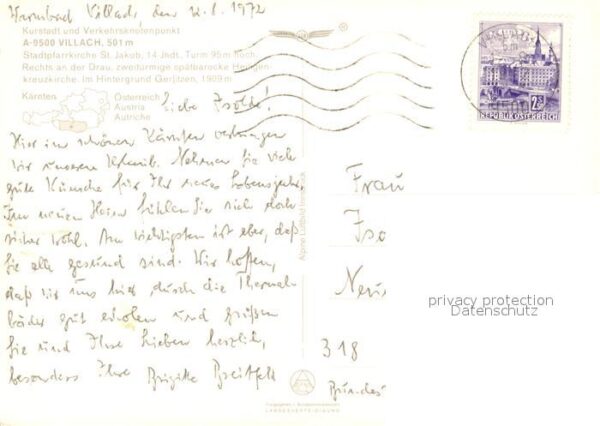 Warmbad Villach, den 12.8.1972
Kurstadt und Verkehrsknotenpunkt
A-9500 VILLACH, 501 m
Stadtpfarrkirche St. Jakob, 14. Jhdt. Turm 95 m hoch
Rechts an der Drau, zweitürmige spätbarocke Heiligen-
kreuzkirche. Im Hintergrund Gerlitzen, 1909 m
Kärnten
Österreich
Austria
Autriche
Liebe Isolde!
Hier im schönen Kärnten verbringen
wir unseren Urlaub. Nehmen Sie viele
gute Wünsche für Ihr neues Lebensjahr.
Im neuen Heim fühlen Sie sich doch
sicher wohl. Am wichtigsten ist aber, daß
Sie alle gesund sind. Wir hoffen,
daß wir uns hier durch die Thermal-
bäder gut erholen und grüßen
Sie und Ihre Lieben herzlich,
besonders Ihre Brigitte Breitfeld
Alpine Luftbild Innsbruck
2.50
REPUBLIK OSTERREICH
Frau
Iso
Neu
318
Bundes
privacy protection
Datenschutz